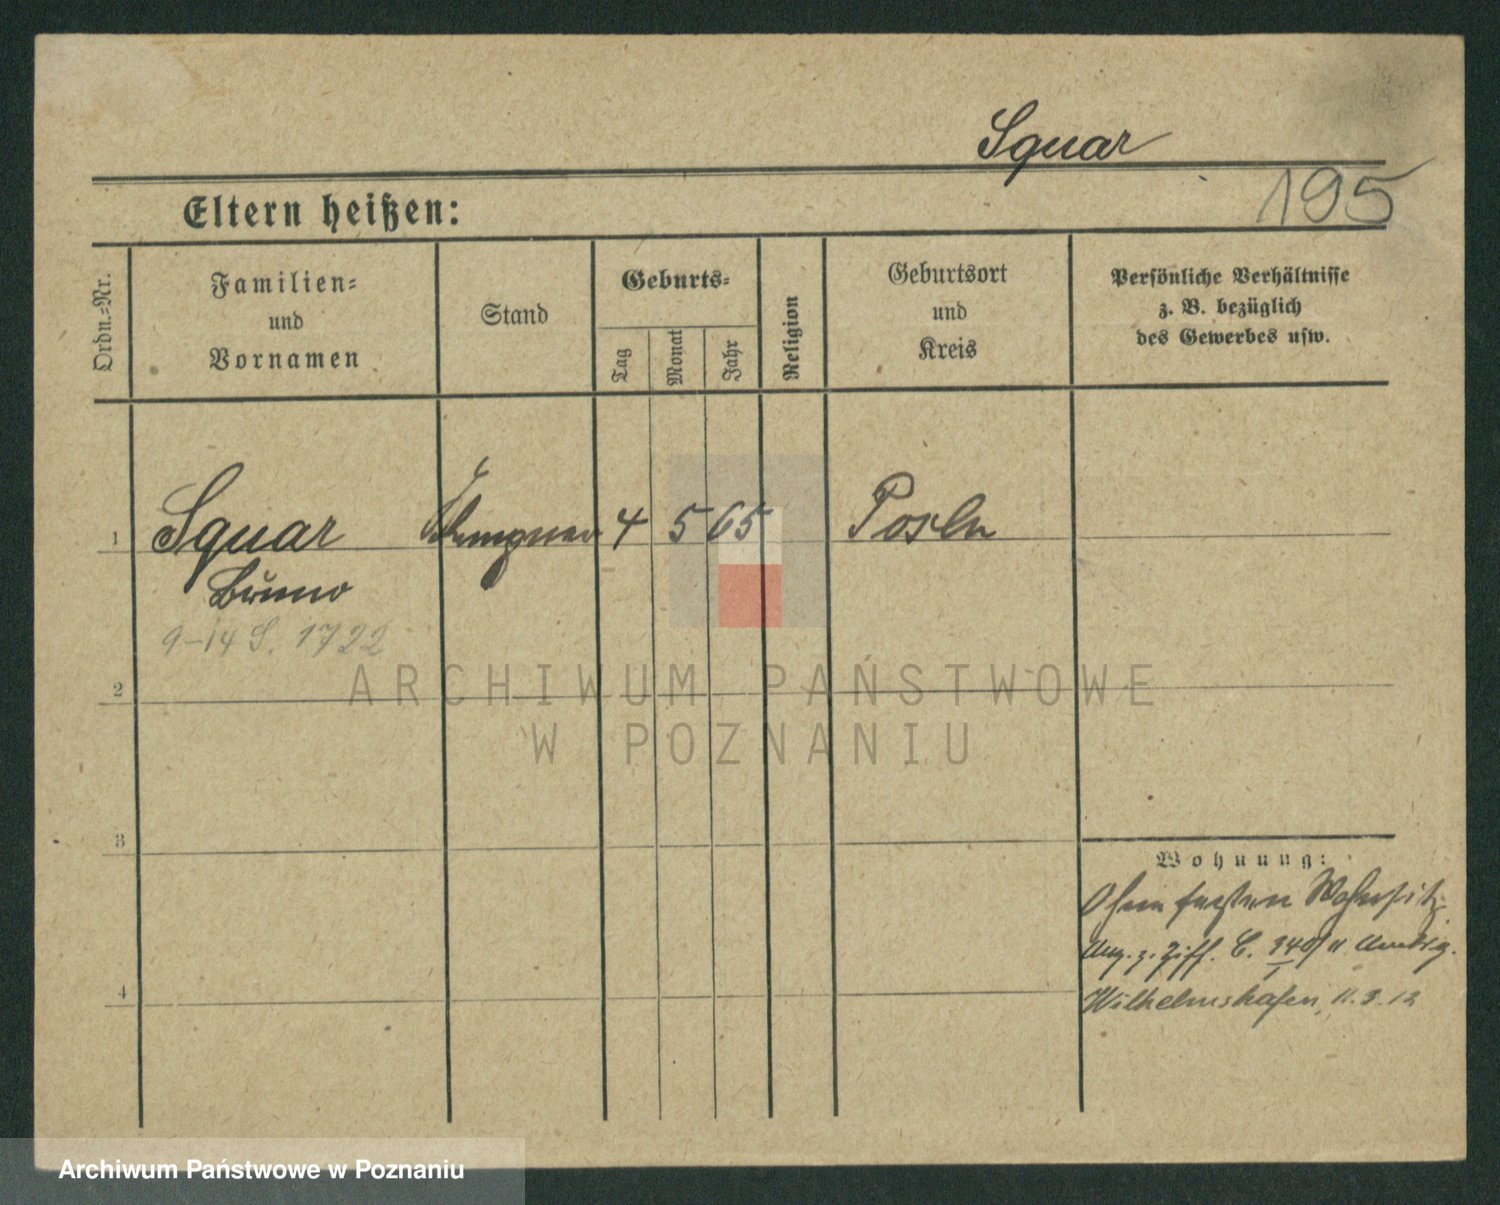 Squar
195
Eltern heißen:
Ordn.=Nr.
Familien=
und
Vornamen
Stand
Geburts=
Tag
Monat
Jahr
Religion
Geburtsort
und
Kreis
Persönliche Verhältnisse
z. B. bezüglich
des Gewerbes usw.
1
Squar
4 5 65
Bruno
9-14 S. 1722
2
ARCHIWUM PAŃSTWOWE
W POZNANIU
3
Wohnung:
Ohne festen Wohnsitz
z. Ziff. C.
4
Wilhelmshafen, 11.3.12
Archiwum Państwowe w Poznaniu